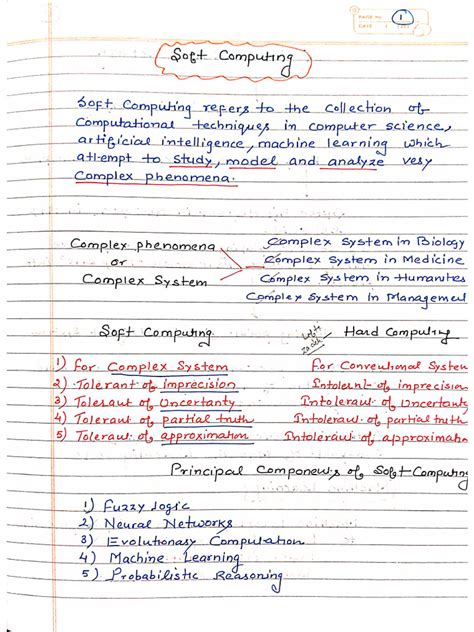 PAGE No. 1
DATE
Soft Computing
Soft Computing refers to the collection of
Computational techniques in computer science,
artificial intelligence, machine learning which
attempt to study, model and analyze very
Complex phenomena.
Complex phenomena
or
Complex System
Complex System in Biology
Complex System in Medicine
Complex System in Humanites
Complex System in Managemen
Soft Computing
Lotfi
Zadeh
Hard Computing
1) For Complex System For Conventional System
2) Tolerant of imprecision Intolerant of imprecision
3) Tolerant of Uncertanty Intolerant of Uncertant
4) Tolerant of partial truth Intolerant of partial truth
5) Tolerant of approximation Intolerant of approximation
Principal Components of Soft Computing
1) Fuzzy logic
2) Neural Networks
3) Evolutionary Computation
4) Machine Learning
5) Probabilistic Reasoning